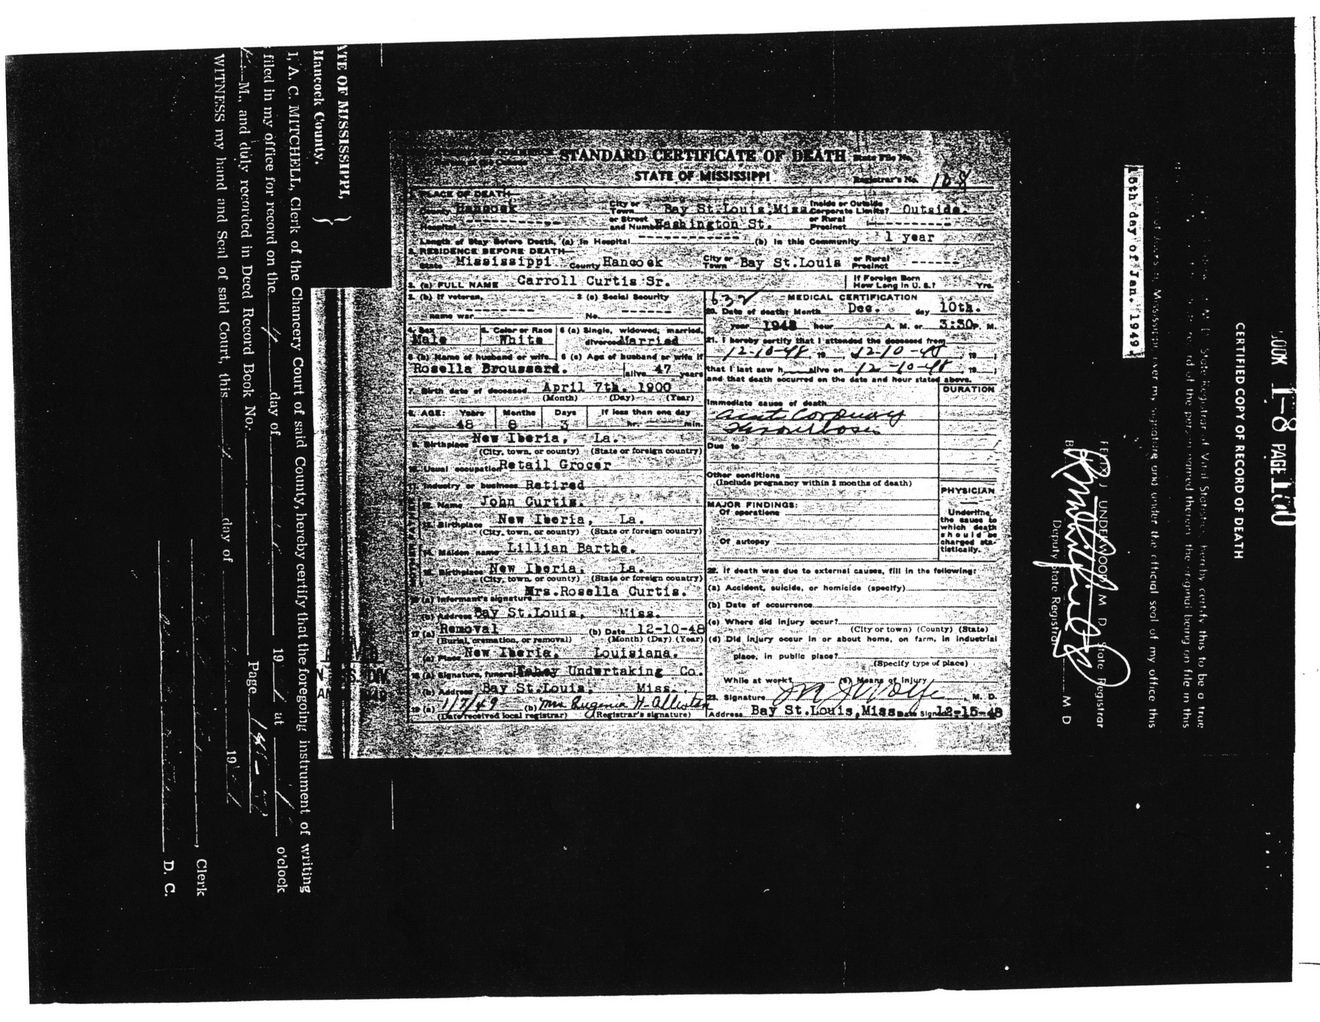 STANDARD CERTIFICATE OF DEATH State File No.
STATE OF MISSISSIPPI Registrar's No. 108
1. PLACE OF DEATH
County Hancock City or Town Bay St.Louis,Miss. Inside or Outside Corporate Limits? Outside.
Hospital or Street and Number Washington St. or Rural Precinct
Length of Stay Before Death, (a) In Hospital (b) In this Community 1 year
2. RESIDENCE BEFORE DEATH
State Mississippi County Hancock City or Town Bay St.Louis or Rural Precinct
3. (a) FULL NAME Carroll Curtis Sr. If Foreign Born How Long in U. S.? Yrs.
3. (b) If veteran, name war 3 (c) Social Security No.
4. Sex Male 5. Color or Race White 6 (a) Single, widowed, married, divorced Married
6 (b) Name of husband or wife Rosella Broussard. 6 (c) Age of husband or wife if alive 47 years
7. Birth date of deceased April 7th. 1900
(Month) (Day) (Year)
8. AGE: Years 48 Months 8 Days 3 If less than one day hr. min.
9. Birthplace New Iberia, La.
(City, town, or county) (State or foreign country)
10. Usual occupation Retail Grocer
11. Industry or business Retired
12. Name John Curtis.
13. Birthplace New Iberia, La.
(City, town, or county) (State or foreign country)
14. Maiden name Lillian Barthe.
15. Birthplace New Iberia, La.
(City, town, or county) (State or foreign country)
16 (a) Informant's signature Mrs.Rosella Curtis.
(b) Address Bay St.Louis, Miss.
17 (a) Removal (b) Date 12-10-48
(Burial, cremation, or removal) (Month) (Day) (Year)
(c) Place New Iberia, Louisiana.
18 (a) Signature, funeral Fahey Undertaking Co.
(b) Address Bay St.Louis, Miss.
19 (a) 1/3/49 (b) Mrs Eugenia H. Allister
(Date received local registrar) (Registrar's signature)
632 MEDICAL CERTIFICATION
20. Date of death: Month Dec. day 10th.
year 1948 hour A. M. or 3:30 P. M.
21. I hereby certify that I attended the deceased from
12-10-48 19 12-10-48 19
that I last saw h alive on 12-10-48 19
and that death occurred on the date and hour stated above.
DURATION
Immediate cause of death
Acute Coronary
Thrombosis
Due to
Other conditions
(Include pregnancy within 3 months of death)
MAJOR FINDINGS:
Of operations
Of autopsy
PHYSICIAN
Underline the cause to which death should be charged statistically.
22. If death was due to external causes, fill in the following:
(a) Accident, suicide, or homicide (specify)
(b) Date of occurrence
(c) Where did injury occur?
(City or town) (County) (State)
(d) Did injury occur in or about home, on farm, in industrial
place, in public place?
(Specify type of place)
While at work? (e) Means of injury
23. Signature M. D.
Address Bay St.Louis,Miss. Date signed 12-15-48
ATE OF MISSISSIPPI,
Hancock County.
I, A. C. MITCHELL, Clerk of the Chancery Court of said County, hereby certify that the foregoing instrument of writing
filed in my office for record on the day of 19 at o'clock
M., and duly recorded in Deed Record Book No. Page
WITNESS my hand and Seal of said Court, this day of 19
, Clerk
D. C.
BOOK 1-8 PAGE 150
CERTIFIED COPY OF RECORD OF DEATH
State Registrar of Vital Statistics, hereby certify this to be a true
the original being on file in this
under the official seal of my office this
15th day of Jan. 1949
UNDERWOOD M D State Registrar
Deputy State Registrar M D